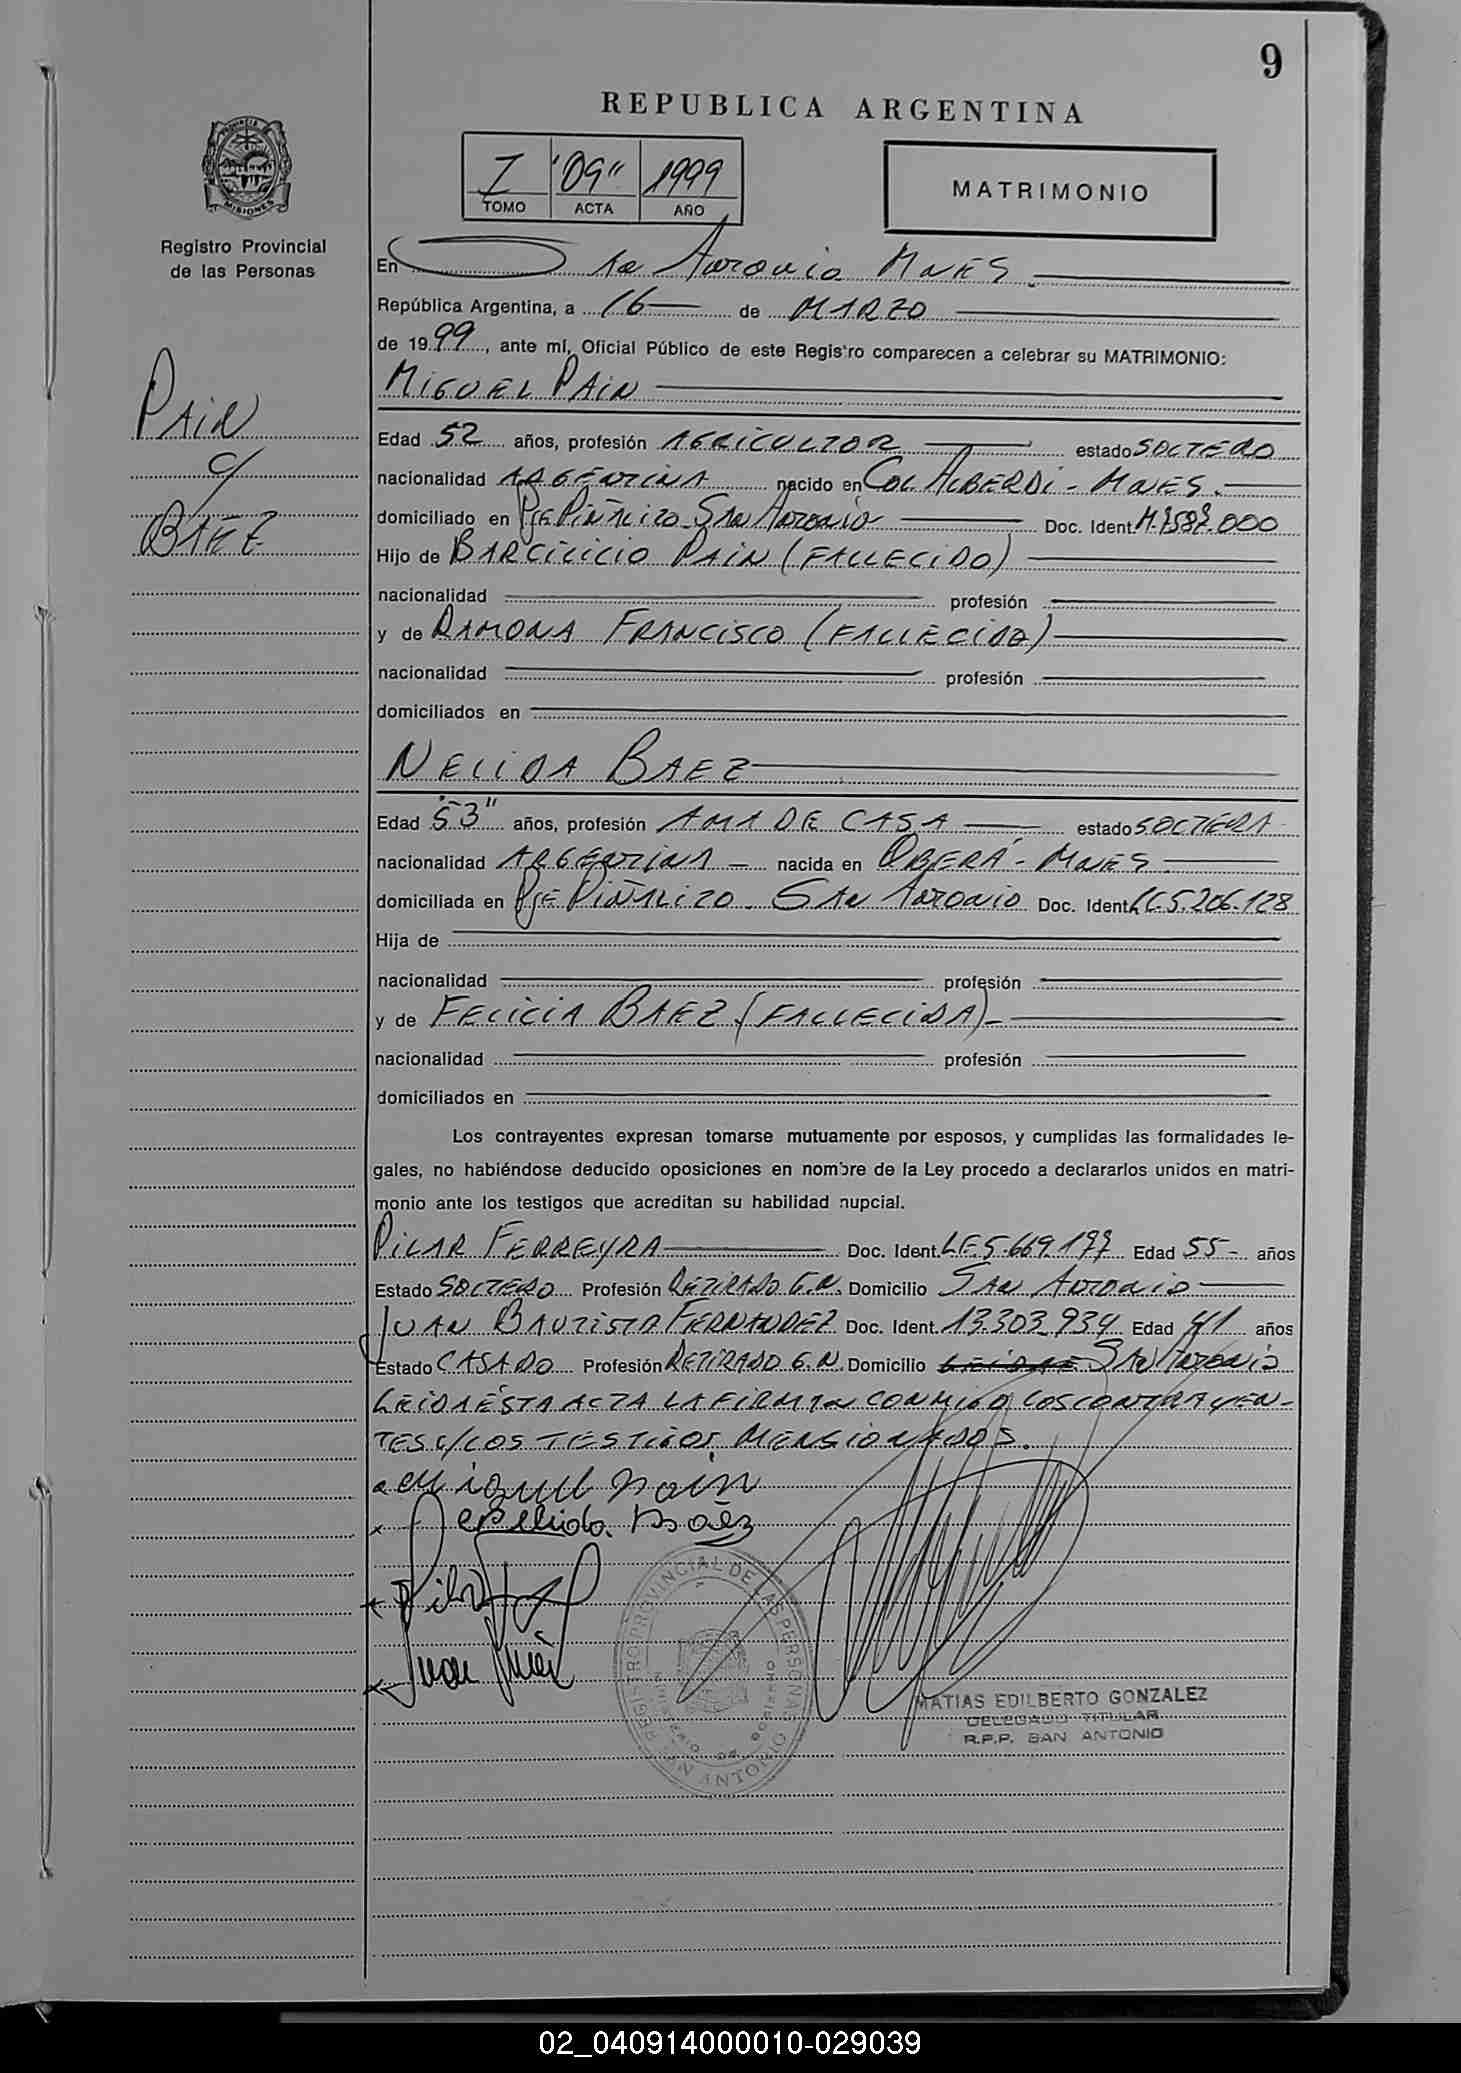 9
REPUBLICA ARGENTINA
I "09" 1999
TOMO ACTA AÑO
MATRIMONIO
PROVINCIA DE MISIONES
Registro Provincial
de las Personas
PAIN
c/
BAEZ
En San Antonio MNES.
República Argentina, a 16 de MARZO
de 1999, ante mí, Oficial Público de este Registro comparecen a celebrar su MATRIMONIO:
MIGUEL PAIN
Edad 52 años, profesión AGRICULTOR estado SOLTERO
nacionalidad ARGENTINA nacido en COL. ALBERDI - MNES.
domiciliado en PJE PIÑALITO - SAN ANTONIO Doc. Ident. M.7587.000
Hijo de BARCILICIO PAIN (FALLECIDO)
nacionalidad profesión
y de RAMONA FRANCISCO (FALLECIDA)
nacionalidad profesión
domiciliados en
NELIDA BAEZ
Edad "53" años, profesión AMA DE CASA estado SOLTERA
nacionalidad ARGENTINA - nacida en OBERÁ - MNES.
domiciliada en PJE PIÑALITO - SAN ANTONIO Doc. Ident. LC.5.206.128
Hija de
nacionalidad profesión
y de FELICIA BAEZ (FALLECIDA)-
nacionalidad profesión
domiciliados en
Los contrayentes expresan tomarse mutuamente por esposos, y cumplidas las formalidades le-
gales, no habiéndose deducido oposiciones en nombre de la Ley procedo a declararlos unidos en matri-
monio ante los testigos que acreditan su habilidad nupcial.
PILAR FERREYRA Doc. Ident. LE.5.669.177 Edad 55- años
Estado SOLTERO Profesión RETIRADO G.N. Domicilio SAN ANTONIO
JUAN BAUTISTA FERNANDEZ Doc. Ident. 13.303.934 Edad 41 años
Estado CASADO Profesión RETIRADO G.N. Domicilio SAN ANTONIO
LEIDA ÉSTA ACTA LA FIRMAN CONMIGO LOS CONTRAYEN-
TES Y/LOS TESTIGOS MENSIONADOS.
Miguel Pain
Nelida Baéz
REGISTRO PROVINCIAL DE LAS PERSONAS
MINISTERIO DE GOBIERNO
SAN ANTONIO
MATIAS EDILBERTO GONZALEZ
DELEGADO TITULAR
R.P.P. SAN ANTONIO
02_040914000010-029039